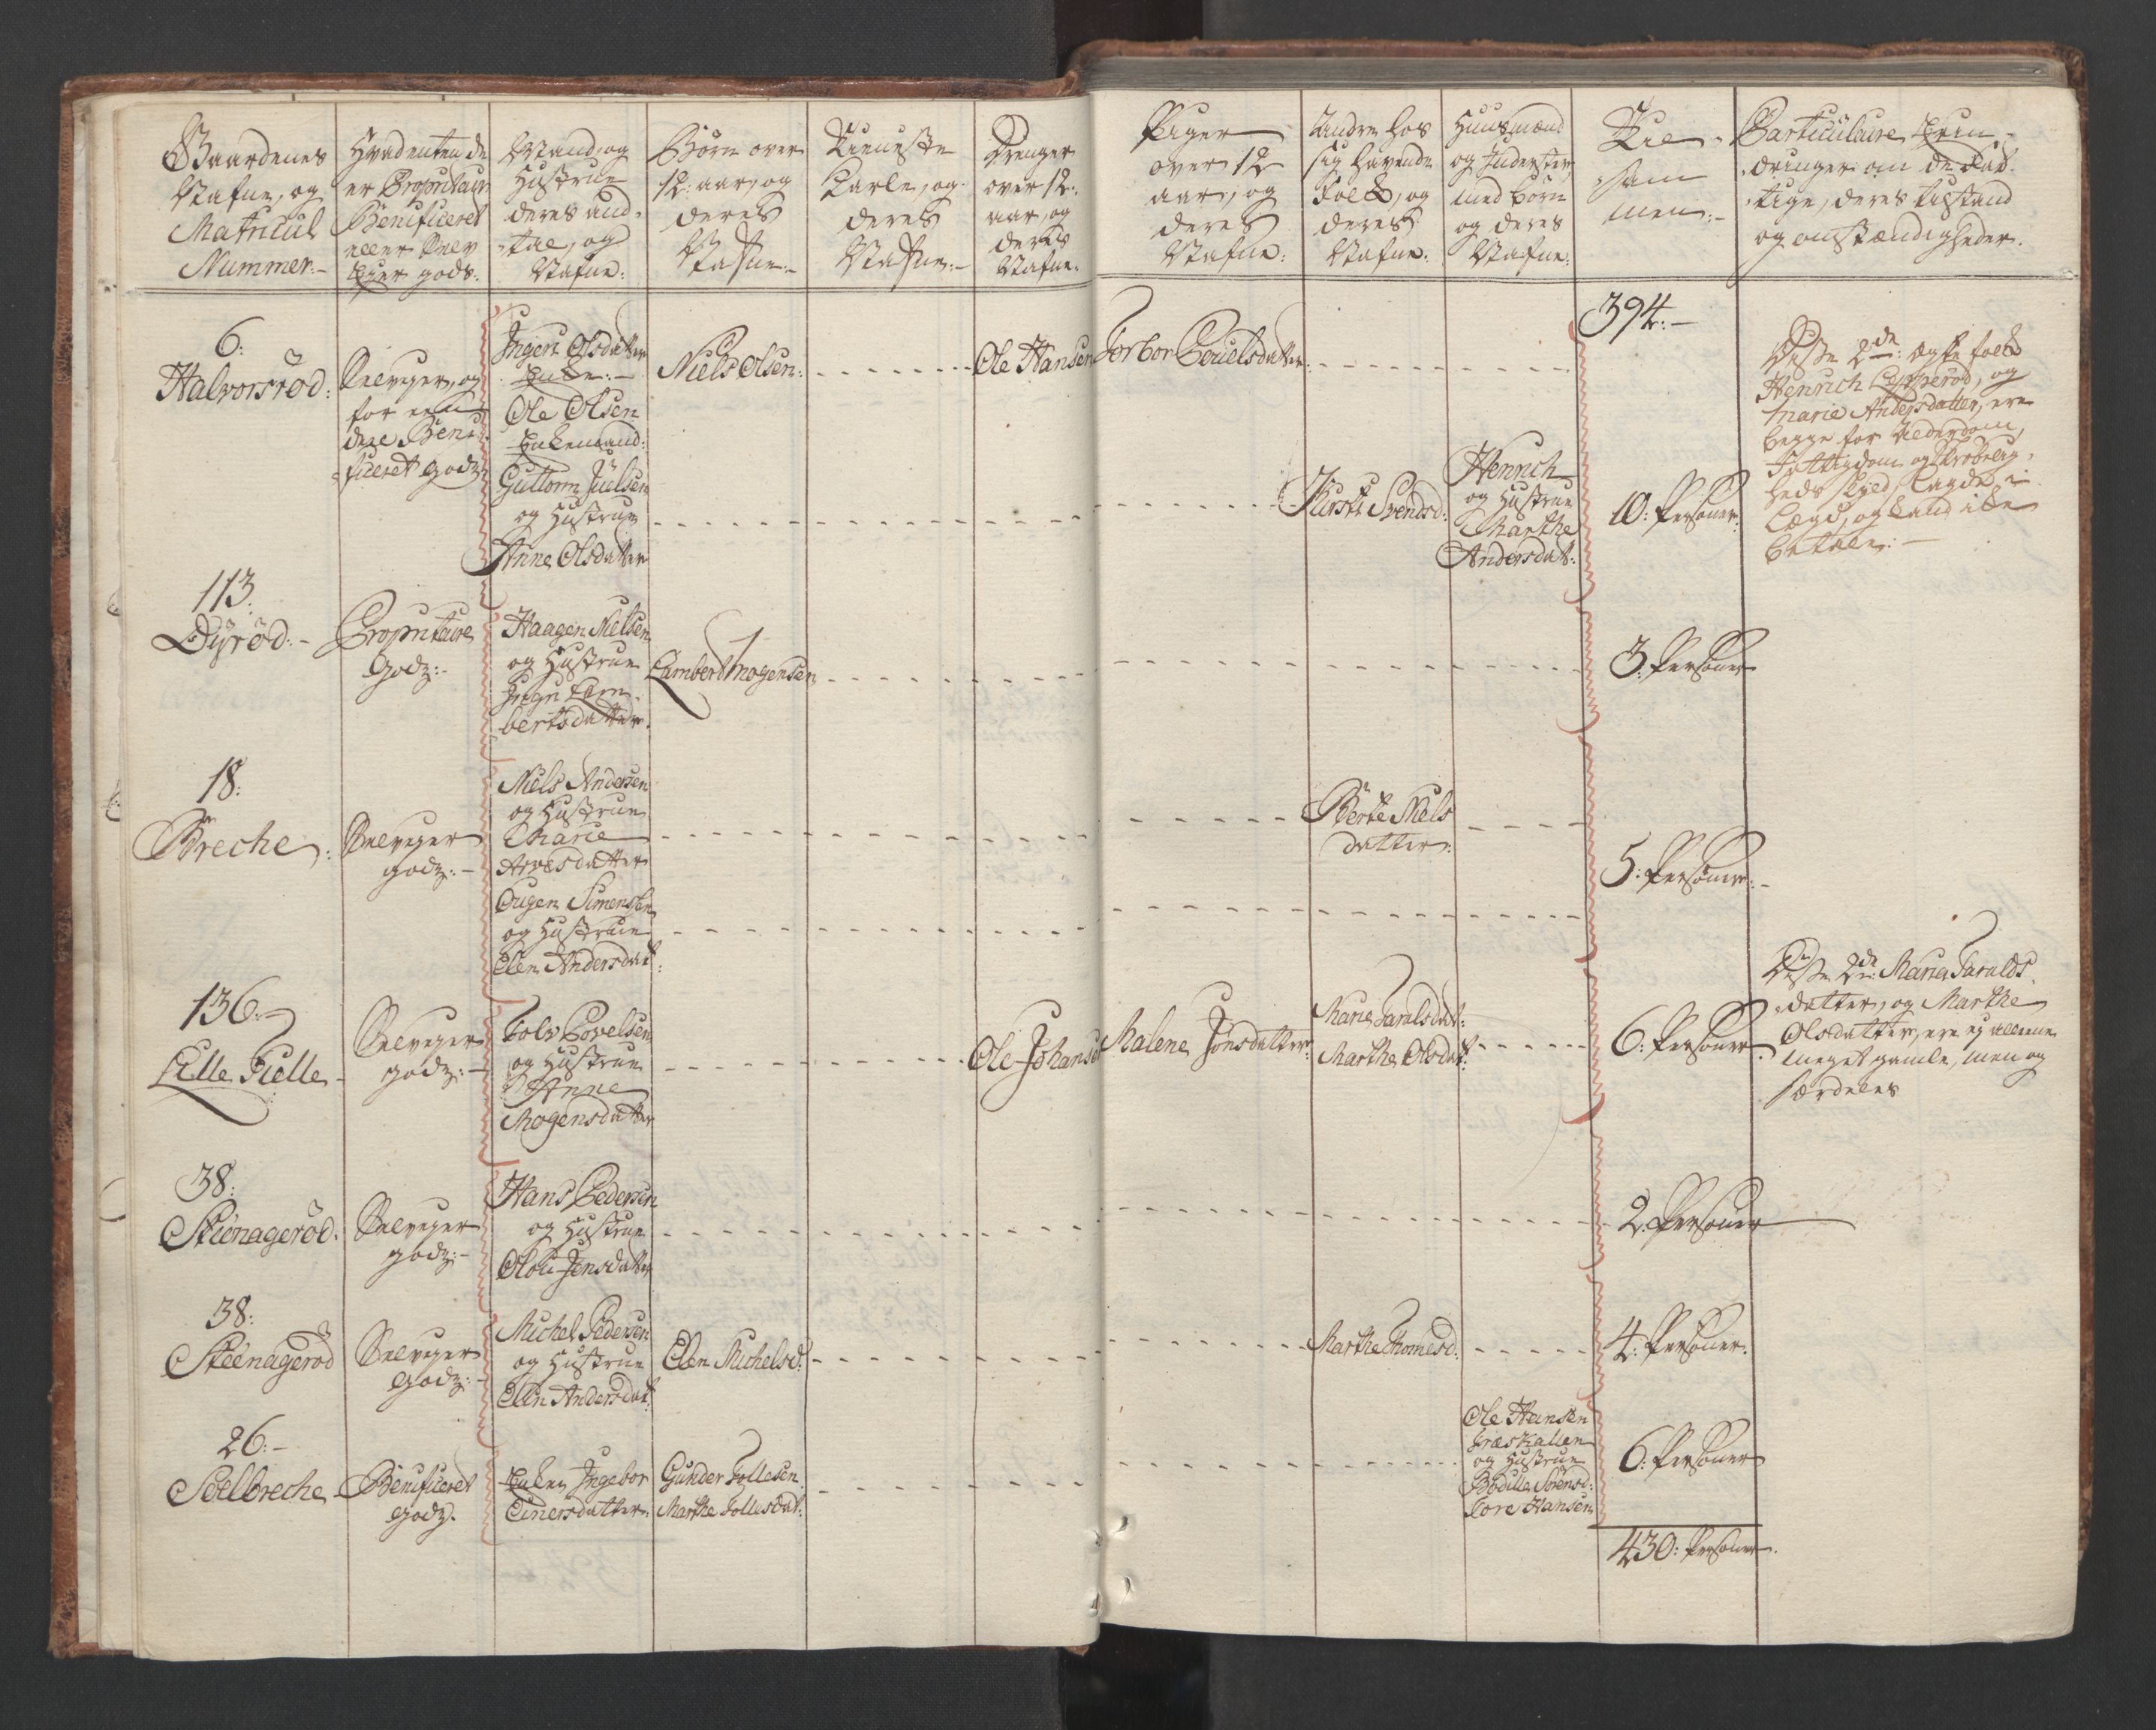 Gaardenes
Nafne, og
Matricul
Nummer:-
Hvad enten de
er Proprietair
Benificeret
eller Selv
Eyer gods:
Mand, og
Hustrue
deres and-
tal, og
Nafne:
Börn over
12: aar, og
deres
Nafne:-
Tieneste
Karle, og
deres
Nafne:-
Drenger
over 12:
aar, og
deres
Nafne:
Piger
over 12
aar, og
deres
Nafne:
Andre hos
sig havende
Folk, og
deres
Nafne:
Huusmænd
og Inderster,
med börn
og deres
Nafne:
Til-
sam
men:-
Particulaire Erin-
dringer om de Fat-
tige, deres tilstand
og omstændigheder.
394:-
6:
Halvorsröd:
Selveyer, og
for een
deel Beni-
ficeret godz
Ingeri Olsdatter
Enke:-
Ole Olsen
Enkemand:
Guttorm Juelsen
og Hustrue
Anne Olsdatter
Niels Olsen:
Ole Hansen
Torbor Pouelsdatter:
Kirsti Svendsd:
Henrich
og Hustrue
Marthe
Andersdat:
10: Personer:
Disse 2de: ægte folk
Henrich, og
Marie Andersdatter, ere
begge for Alderdom,
Fattigdom og Skröbelig-
heds skyld, lagde i
Lægd, og kand ikke
betale:-
113:
Dÿröd:-
Proprietaire
Godz:-
Haagen Nielsen
og Hustrue
Inger Lam-
bertsdatter.
Lambert Mogensen
3: Personer
18:
Breche:
Selveyer
godz:-
Niels Andersen
og Hustrue
Marie
Arvesdatter
Ougen Simensen
og Hustrue
Elen Andersdat:
Berte Niels
datter:
5: Personer:-
136:-
Lille Fielle-
Selveyer
godz:-
Tolv Povelsen
og Hustrue
Anne
Mogensdatter
Ole Johansen
Malene Jonsdatter:
Marie Taralsdat:
Marthe Olsdat:
6: Personer.
Disse 2de: Marie Taralds-
datter, og Marthe
Olsdatter, ere ej alleene
meget gamle, men og
særdeles
38:
Steenageröd:
Selveyer
godz:-
Hans Pedersen
og Hustrue
Olou Jensdatter
2. Personer
38:
Steenageröd
Selveyer
Godz:-
Michel Pedersen
og Hustrue
Elen Andersdat:
Elen Michelsd:
Marthe Thomesd:
4: Personer:
26:-
Soelbreche
Benificeret
godz.
Enken Ingebor
Einersdatter:
Gunder Tollesen
Marthe Tollesdat:
Ole Hansen
og Hustrue
Bodille Sörensd:
Tore Hansen
6: Personer
430: Personer.